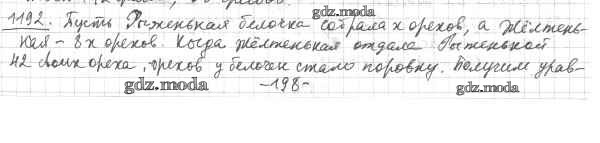 gdz.moda
1192. Пусть Рыженькая белочка собрала x орехов, а Жёлтень-
кая - 8x орехов. Когда жёлтенькая отдала Рыженькой
42 своих ореха, орехов у белочек стало поровну. Получим урав-
gdz.moda -198- gdz.moda